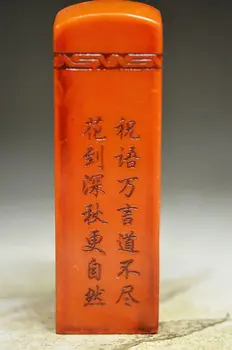 祝语万言道不尽
花到深秋更自然